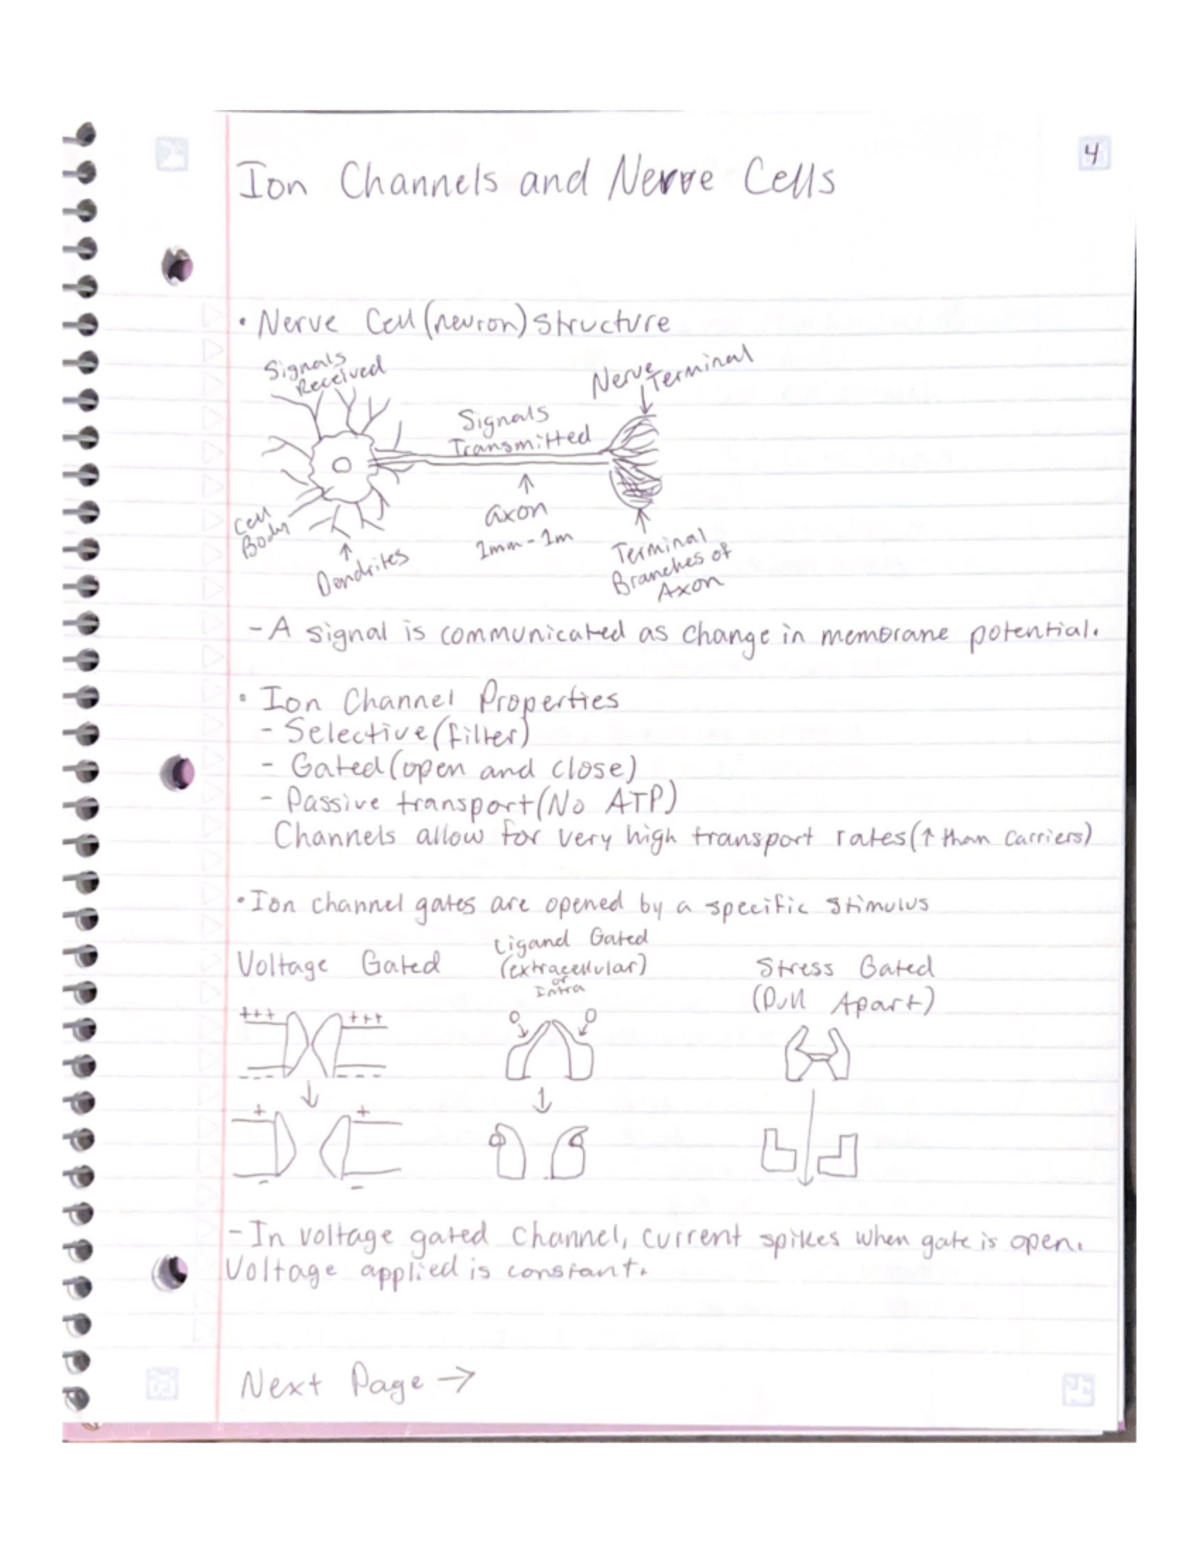 4
Ion Channels and Nerve Cells
• Nerve Cell (neuron) Structure
Signals
Received
Signals
Transmitted
Nerve
Terminal
Cell
Body
Dendrites
axon
1mm-1m
Terminal
Branches of
Axon
- A signal is communicated as change in membrane potential.
• Ion Channel Properties
- Selective (filter)
- Gated (open and close)
- Passive transport (No ATP)
Channels allow for very high transport rates (↑ than carriers)
• Ion channel gates are opened by a specific stimulus
Voltage Gated
Ligand Gated
(extracellular)
or
Intra
Stress Gated
(Pull Apart)
+++ +++
+ +
- In voltage gated channel, current spikes when gate is open.
Voltage applied is constant.
Next Page →